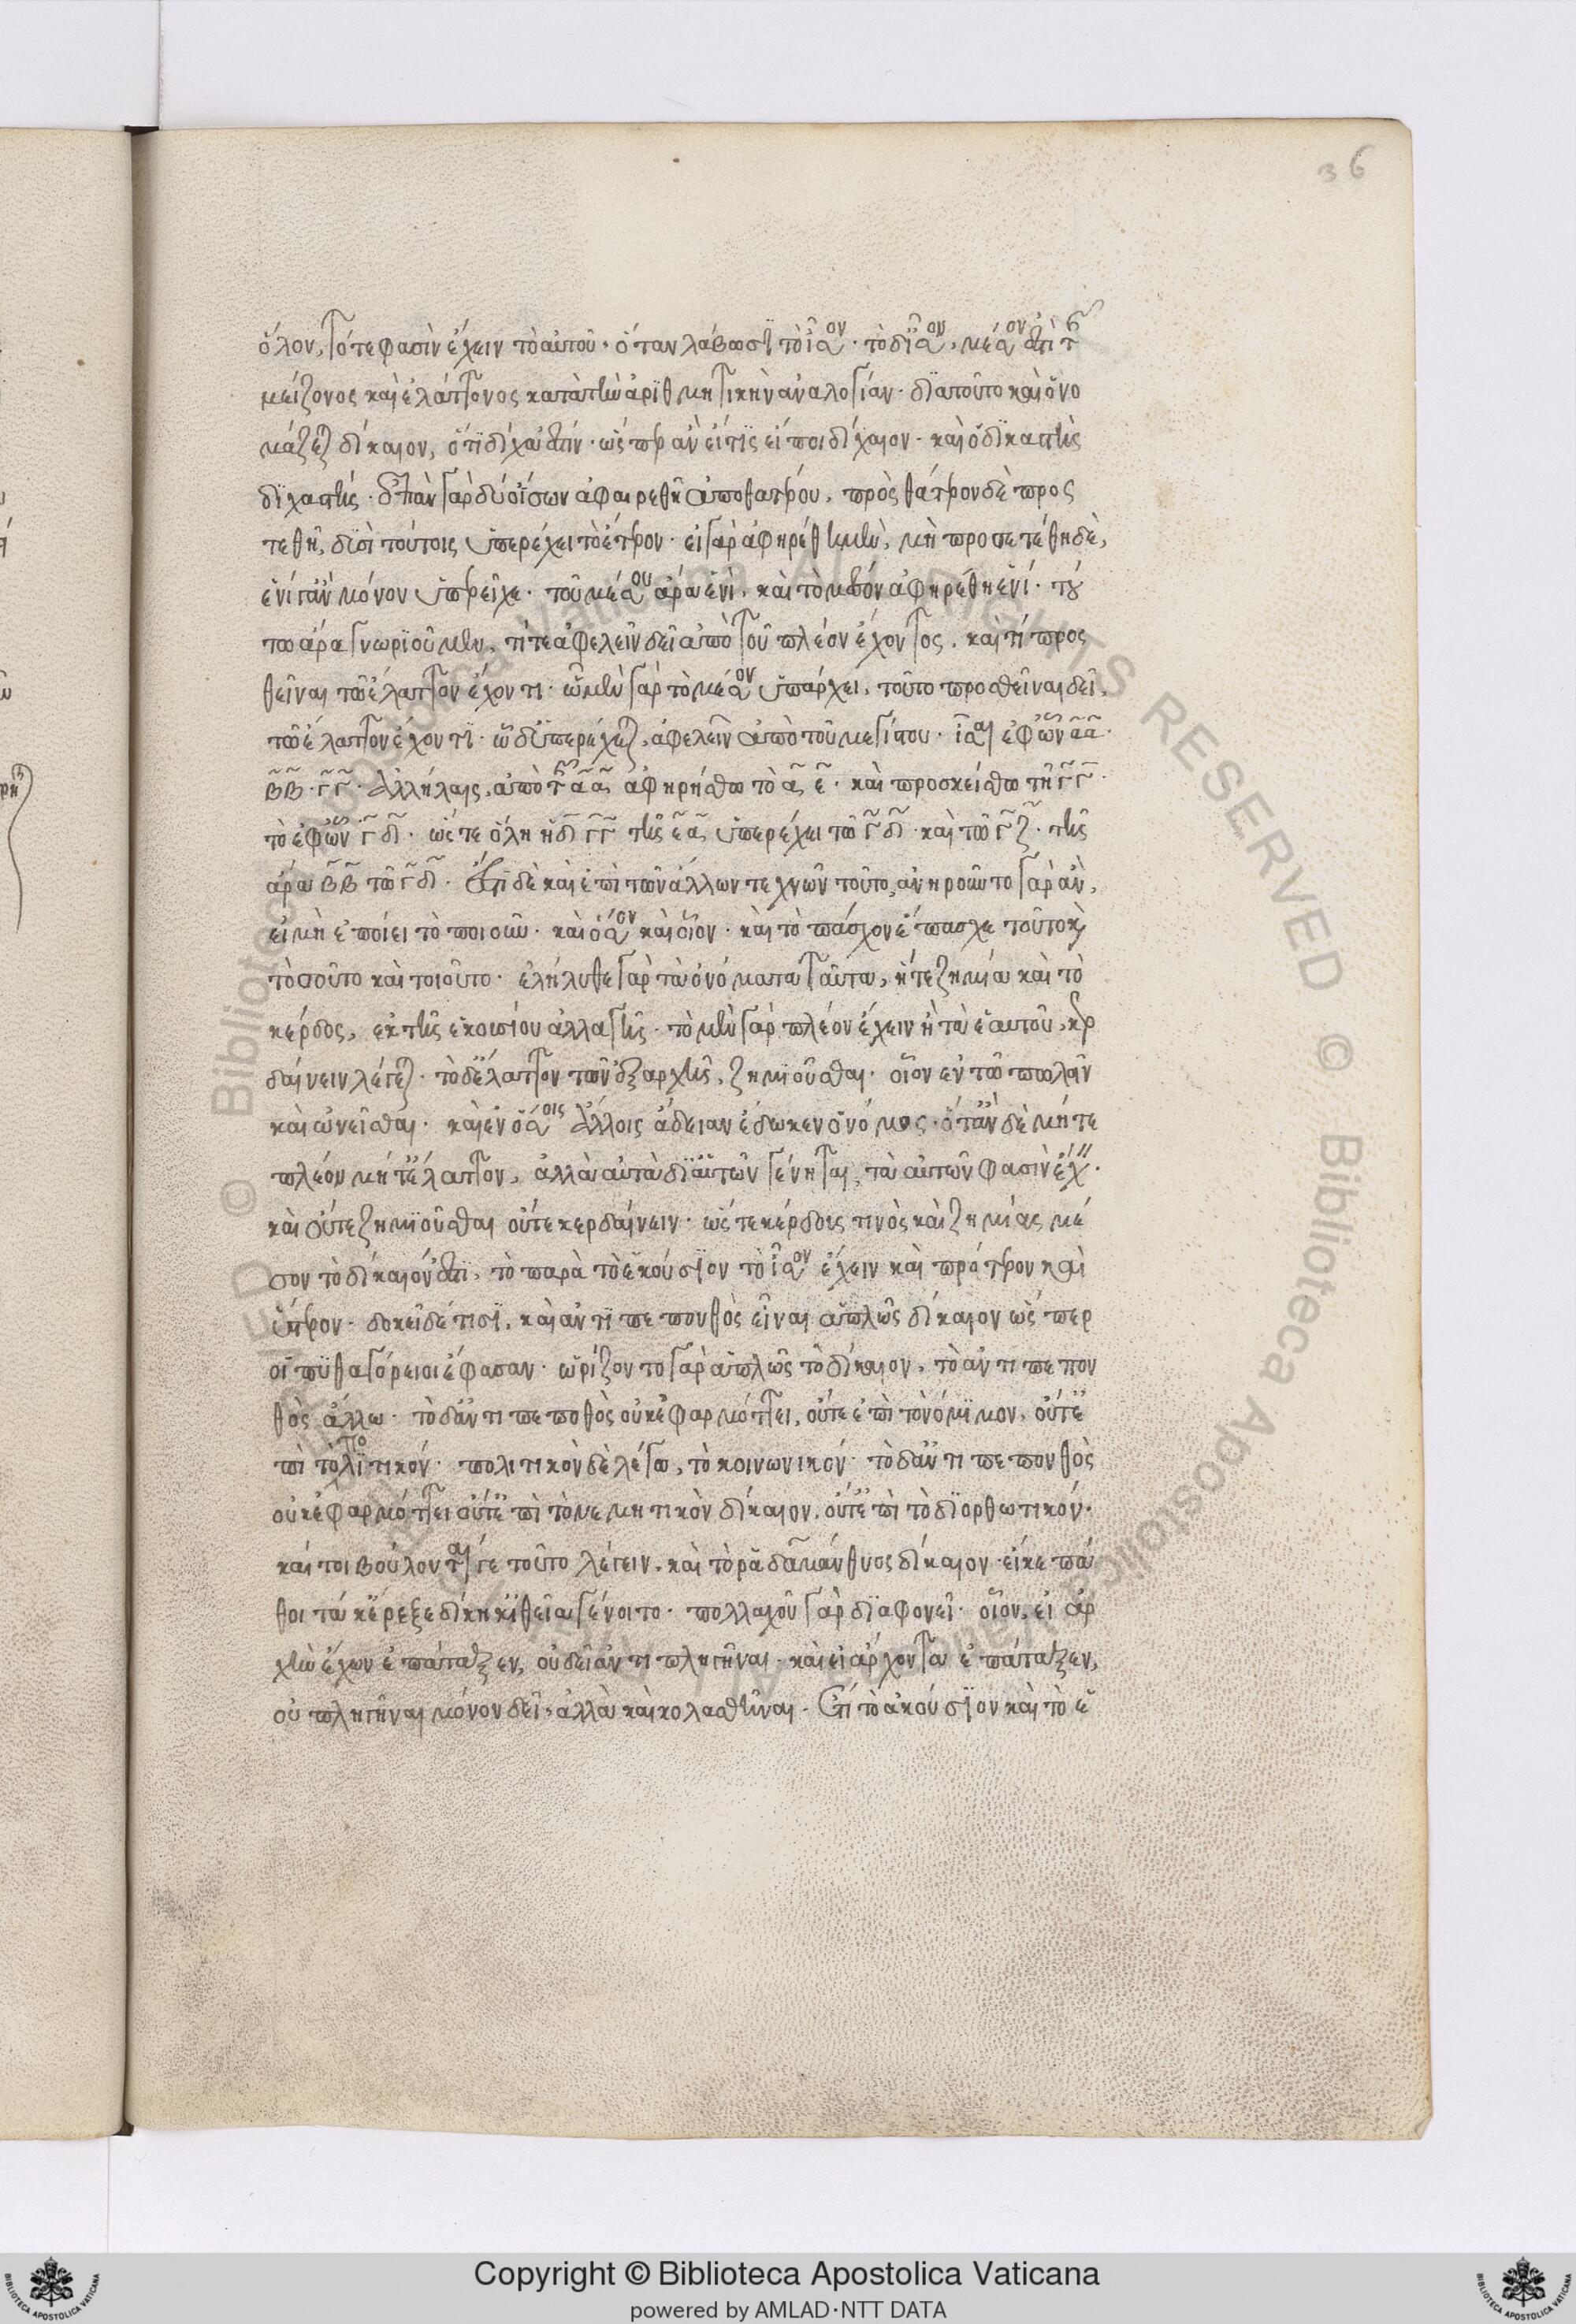 36
ὅλον, τότε φασὶν ἔχειν τὸ αὑτοῦ· ὅταν λάβωσϊ τὸ ἴσον· τὸ δ' ἴσον, μέσον ἐστὶ τῆς
μείζονος καὶ ἐλάττονος κατὰ τὴν ἀριθμητικὴν ἀναλογίαν· διὰ τοῦτο καὶ ὀνο
μάζεται δίκαιον, ὅτι δίχα ἐστίν· ὥσπερ ἂν εἴ τις εἴποι δίχαιον· καὶ ὁ δικαστὴς
διχαστής· ἐπὰν γὰρ δύο ἴσων ἀφαιρεθῆ ἀπὸ θατέρου, πρὸς θάτερον δὲ προς
τεθῆ, δυσὶ τούτοις ὑπερέχει τὸ ἕτερον· εἰ γὰρ ἀφηρέθη μὲν, μὴ προσετέθη δὲ,
ἑνὶ ἂν μόνον ὑπερεῖχε· τοῦ μέσου ἄρα ἑνὶ, καὶ τὸ μέσον ἀφ' ἧ ἀφηρέθη ἑνί· τού
τω ἄρα γνωριοῦμεν, τί τε ἀφελεῖν δεῖ ἀπὸ τοῦ πλέον ἔχοντος, καὶ τί προς
θεῖναι τῶ ἔλαττον ἔχοντι· ὧ μὲν γὰρ τὸ μέσον ὑπάρχει, τοῦτο προσθεῖναι δεῖ,
τῶ ἔλαττον ἔχοντι· ὧ δ' ὑπερέχεται, ἀφελεῖν ἀπὸ τοῦ μεγίστου· ἴσαι ἐφ' ὧν α α·
β β· γ γ· ἀλλήλαις, ἀπὸ τῆς α α ἀφηρήσθω τὸ α ε· καὶ προσκείσθω τῆ γ γ·
τὸ ἐφ' ὧν γ δ· ὥστε ὅλη ἡ δ γ γ τῆς ε α ὑπερέχει τῶ γ δ· καὶ τῶ γ ζ· τῆς
ἄρα β β τῶ γ δ· ἔστι δὲ καὶ ἐπὶ τῶν ἄλλων τεχνῶν τοῦτο, ἀνηροῦντο γὰρ ἂν,
εἰ μὴ ἐποίει τὸ ποιοῦν· καὶ ὅσον καὶ οἷον· καὶ τὸ πάσχον ἔπασχε τοῦτο καὶ
τοσοῦτο καὶ τοιοῦτο· ἐλήλυθε γὰρ τὰ ὀνόματα ταῦτα, ἥ τε ζημία καὶ τὸ
κέρδος, ἐκ τῆς ἑκουσίου ἀλλαγῆς· τὸ μὲν γὰρ πλέον ἔχειν ἢ τὰ ἑαυτοῦ, κερ
δαίνειν λέγεται· τὸ δ' ἔλαττον τῶν ἐξαρχῆς, ζημιοῦσθαι· οἷον ἐν τῶ πωλεῖν
καὶ ὠνεῖσθαι· καὶ ἐν ὅσοις ἄλλοις ἄδειαν ἔδωκεν ὁ νόμος· ὅταν δὲ μήτε
πλέον μήτ' ἔλαττον, ἀλλὰ αὐτὰ δι' αὑτῶν γένηται, τὰ αὑτῶν φασὶν ἔχειν·
καὶ οὔτε ζημιοῦσθαι οὔτε κερδαίνειν· ὥστε κέρδους τινὸς καὶ ζημίας μέ
σον τὸ δίκαιόν ἐστι, τὸ παρὰ τὸ ἑκούσιον τὸ ἴσον ἔχειν καὶ πρότερον καὶ
ὕστερον· δοκεῖ δέ τισι, καὶ ἀντιπεπονθὸς εἶναι ἁπλῶς δίκαιον ὥσπερ
οἱ πυθαγόρειοι ἔφασαν· ὡρίζοντο γὰρ ἁπλῶς τὸ δίκαιον, τὸ ἀντιπεπον
θὸς ἄλλω· τὸ δ' ἀντιπεποθὸς οὐκ ἐφαρμόττει, οὔτε ἐπὶ τὸ νόμιμον, οὔτ' ἐ
πὶ τὸ πολιτικόν· πολιτικὸν δὲ λέγω, τὸ κοινωνικόν· τὸ δ' ἀντιπεπονθὸς
οὐκ ἐφαρμόττει οὔτ' ἐπὶ τὸ νεμητικὸν δίκαιον, οὔτ' ἐπὶ τὸ διορθωτικόν·
καί τοι βούλονταί γε τοῦτο λέγειν, καὶ τὸ ῥαδαμάνθυος δίκαιον· εἴ κε πά
θοι τά κ' ἔρεξε δίκη κ' ἰθεῖα γένοιτο· πολλαχοῦ γὰρ διαφονεῖ· οἷον, εἰ ἀρ
χὴν ἔχων ἐπάταξεν, οὐ δεῖ ἀντιπληγῆναι· καὶ εἰ ἄρχοντα ἐπάταξεν,
οὐ πληγῆναι μόνον δεῖ, ἀλλὰ καὶ κολασθῆναι· ἔτι τὸ ἀκούσιον καὶ τὸ ἑ
Copyright © Biblioteca Apostolica Vaticana
powered by AMLAD·NTT DATA